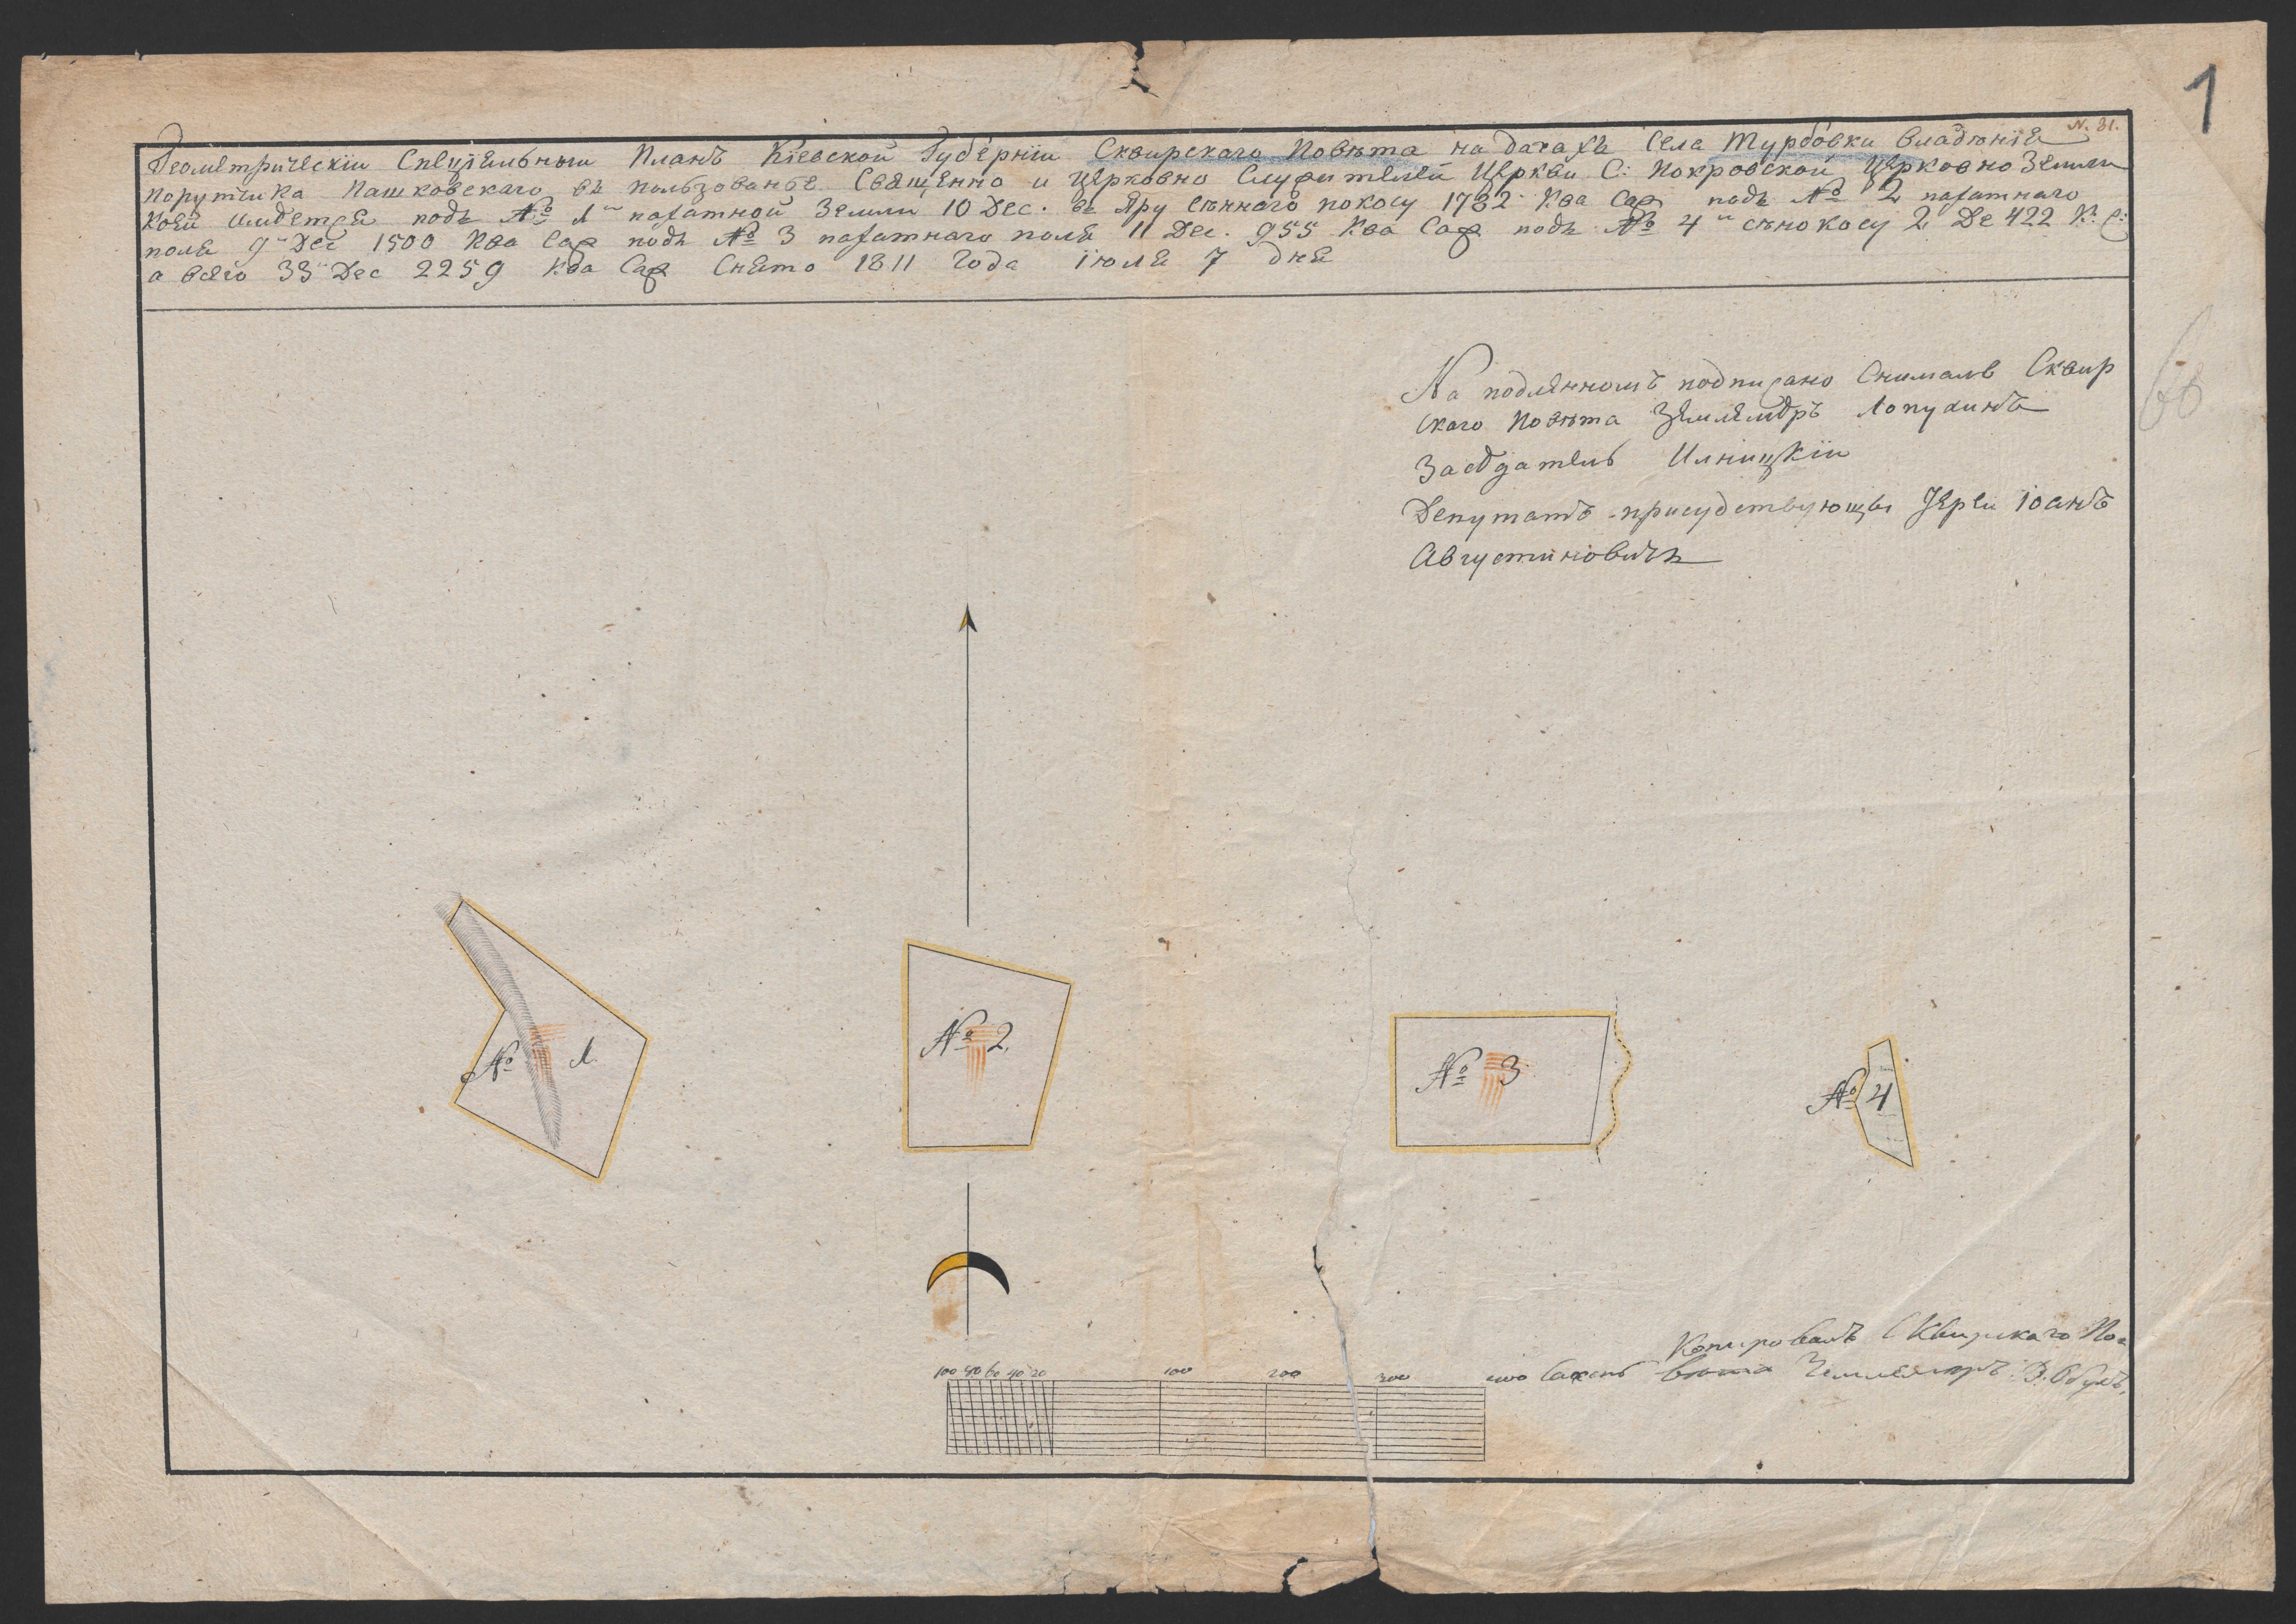 1
N. 31.
Геометрическїи Спецїяльныи Планъ Кїевскои Губернїи Сквирскаго Повѣта на дачахъ Села Турбовки владѣнїя
порутчика Пашковскаго въ пользованье Священно и Церковно Служителей Церкви С: Покровской Церковно Земли
коей имѣется подъ № 1м пахатной Земли 10 Дес. въ Яру сѣннаго покосу 1782 Ква Саж подъ № 2 пахатнаго
поля 9 Дес 1500 Ква Саж подъ № 3 пахатнаго поля 11 Дес. 955 Ква Саж подъ № 4м сѣнокосу 2 Де 422 К: С:
а всего 33 Дес 2259 Ква Саж Снято 1811 Года їюля 7 дня
На подлянномъ подписано Снималъ Сквир
скаго Повѣта Землемѣръ Лопухинъ
Засѣдатель Илницкїи
Депутатъ присудствующы Јереи Їоанъ
Августиновичъ
№ 1.
№ 2.
№ 3
№ 4
Копировалъ Сквирскаго По=
100 80 60 40 20 100 200 300 400 Сажень вѣта Землемѣръ